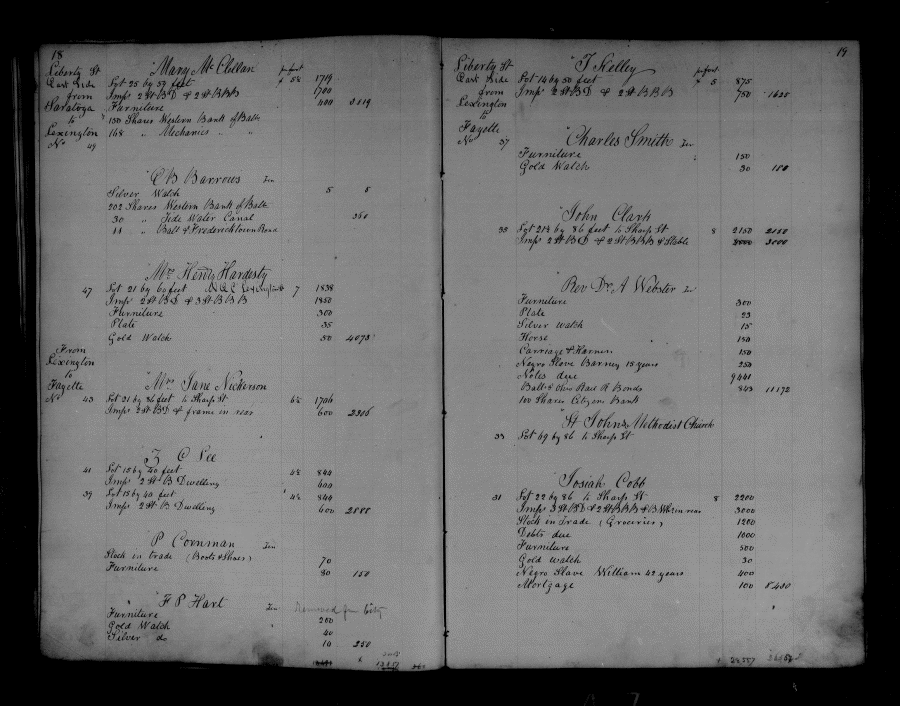 18
Liberty St
East Side
from
Saratoga
to
Lexington
No 49
Mary McClellan
per foot
Lot 25 by 59 feet 1719
Imps 2 St BD & 2 St BBB 1700
Furniture 400 3119
150 Shares Western Bank of Balto
168 " Mechanics " "
C B Barrows Ten
Silver Watch 5 5
202 Shares Western Bank of Balt
30 " Tide Water Canal
11 " Balt & Fredericktown Road
Hardesty
47 Lot 21 by 60 feet 7 1838
Imps 2 St BD & 3 St BBB 1850
Furniture 300
Plate 35
Gold Watch 50 4073
From
Lexington
to
Fayette
No
Mrs Jane Nickerson
43 Lot 21 by 86 feet to Sharp St 1706
Imps 2 St BD & frame in rear 600 2306
41 Lot 15 by 40 feet 844
Imps 2 St B Dwelling 600
39 Lot 15 by 40 feet 844
Imps 2 St B Dwelling 600 2888
P Coonman Ten
Stock in trade (Boots & Shoes) 70
Furniture 80 150
F P Hart Ten Removed from City
Furniture 200
Gold Watch 40
Silver do 10 250
19
Liberty St
East Side
from
Lexington
to
Fayette
No 37
per foot
Lot 14 by 50 feet 5 875
Imps 2 St BD & 2 St BBB 750 1625
Charles Smith Ten
Furniture 150
Gold Watch 30 180
John Clark
35 Lot 21½ by 86 feet to Sharp St 8 2150 2150
Imps 2 St BD & 2 St BBB & Stable 3000
Rev Dr A Webster Ten
Furniture 300
Plate 23
Silver watch 15
Horse 150
Carriage & Harness 150
Negro Slave Barney 15 years 250
Notes due 9441
Balto & Ohio Rail R Bonds 843 11172
100 Shares Citizens Bank
St Johns Methodist Church
33 Lot 69 by 86 to Sharp St
Josiah Cobb
31 Lot 22 by 86 to Sharp St 8 2200
Imps 3 St BD & 2 St BBB & B WH in rear 3000
Stock in Trade (Groceries) 1200
Debts due 1000
Furniture 500
Gold watch 30
Negro Slave William 42 years 400
Mortgage 100 8430